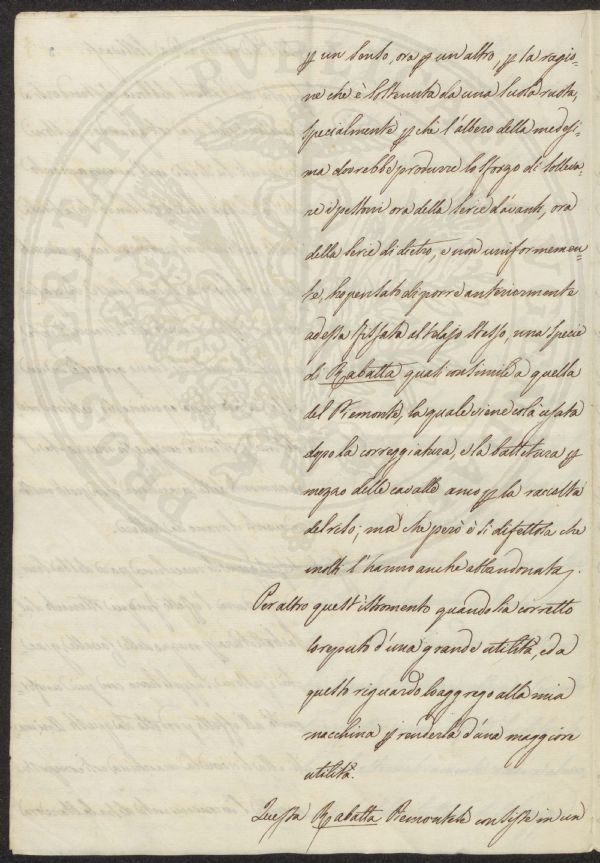 ꝑ un senso, ora ꝑ un altro, ꝑ la ragio-
ne che è sostenuta da una suola ruota,
specialmente ꝑ chè l'albero della medesi-
ma dovrebbe produrre lo sforzo di solleva-
re i pestoni ora della serie d'avanti, ora
della serie di dietro, e non uniformemen-
te, ho pensato di porre anteriormente
ad essa fissata al telajo stesso, una specie
di Rabatta quasi consimile a quella
del Piemonte, la quale viene colà usata
dopo la correggiatura, e la battitura ꝑ
mezzo delle cavalle anco ꝑ la raccolta
del riso; ma che però è sì difettosa che
molti l'hanno anche abbandonata.
Per altro quest'istromento quando sia corretto
lo reputo d'una grande utilità, ed a
questo riguardo lo aggrego alla mia
macchina ꝑ renderla d'una maggiore
utilità.
Questa Rabatta Piemontese consiste in un